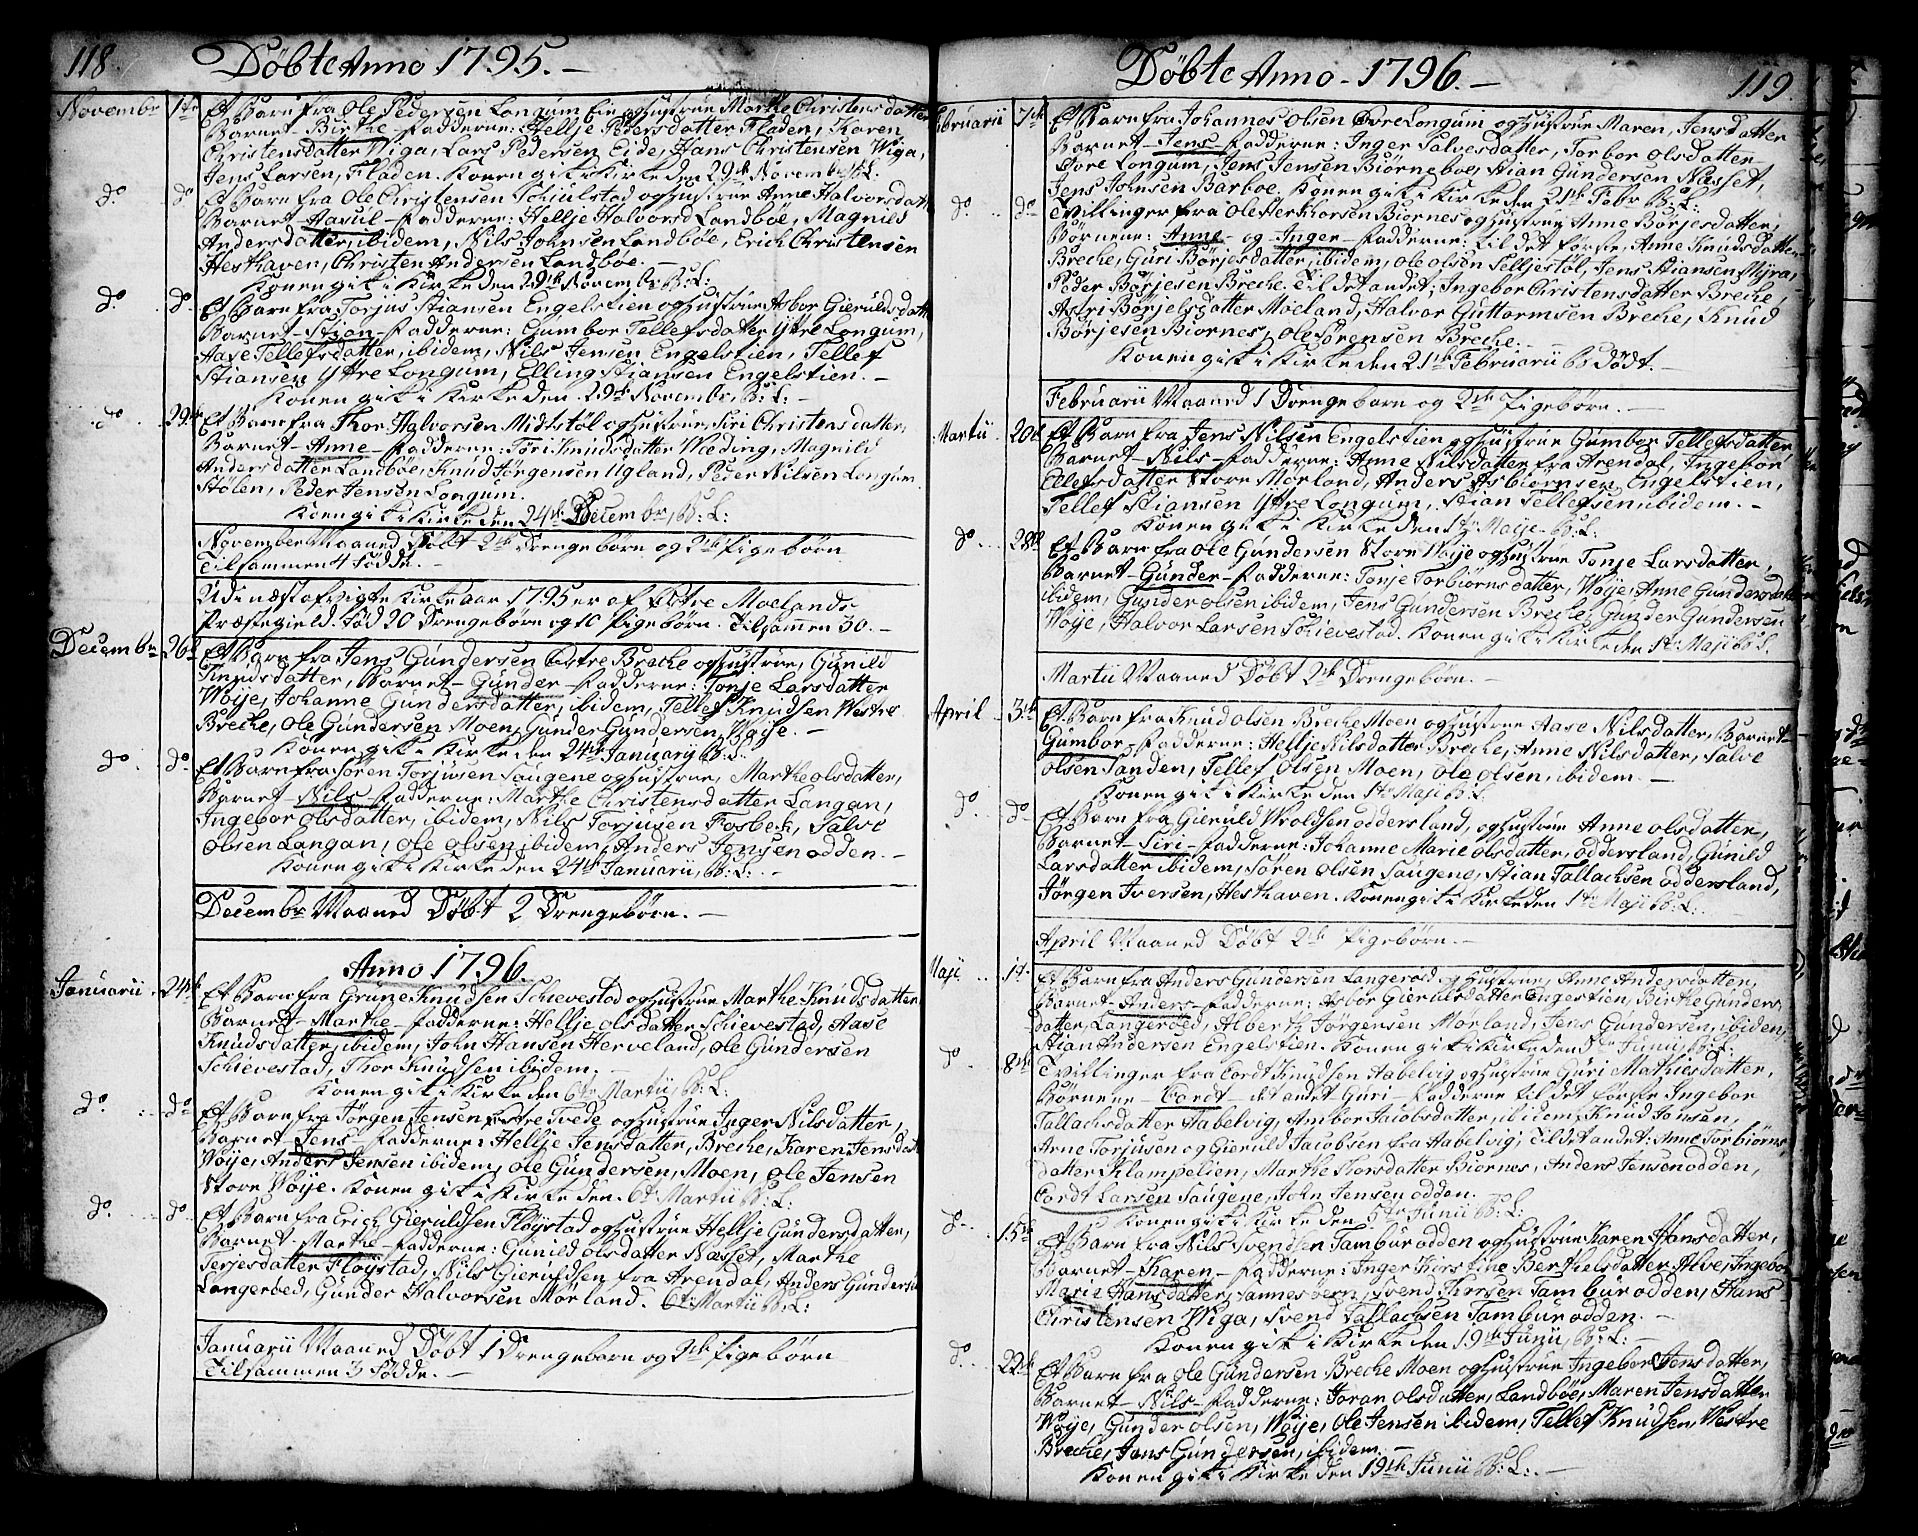 118.
Döbte Anno 1795.-
Novembr 1te Et Barn fra Ole Pedersen Longum Eie og Hustrue Marthe Christensdatter
Barnet- Birthe- Fadderne: Hellje Pedersdatter Fladen, Karen
Christensdatter Wiga, Lars Pedersen Eide, Hans Christensen Wiga,
Jens Larsen, Fladen. Konen gik i Kirke den 29de Novembr B: L:
do do Et Barn fra Ole Christensen Schiulstad og Hustrue Anne Halvorsdatter
Barnet- Aasul- Fadderne: Hellje Halvorsd Landböe, Magnild
Andersdatter, ibidem, Nils Johnsen Landböe, Erich Christensen
Hesthaven, Christen Andersen Landböe.-
Konen gik i Kirke den 29de Novembr B: L:
do do Et Barn fra Torjus Stiansen Engelstien og Hustrue, Asbor Gieruldsdatter
Barnet- Stian- Fadderne: Gumbor Tellefsdatter Yttre Longum,
Aase Tellefsdatter, ibidem, Nils Jensen Engelstien, Tellef
Stiansen Yttre Longum, Elling Stiansen Engelstien.-
Konen gik i Kirke den 29de Novembr, B: L:-
do 29de Et Barn fra Thor Halvorsen Midtstöl og Hustrue, Siri Christensdatter,
Barnet- Anne- Fadderne: Töri Knudsdatter Weding, Magnild
Andersdatter Landböe, Knud Jörgensen Ugland, Peder Nilsen Longum
Stölen, Peder Jensen Longum.
Konen gik i Kirke den 24de Decembr, B: L:
November Maaned Döbt 2de Drengebörn og 2de Pigebörn
Tilsammen 4 Födde.-
Udi næstafvigte Kirkeaar 1795 er af Östre Moelands
Præstegield Föd 20 Drengebörn og 10 Pigebörn. Tilsammen 30.-
Decembr 26de Et Barn fra Jens Gundersen Östre Breche og Hustrue, Gunild
Knudsdatter, Barnet- Gunder- Fadderne: Tonje Larsdatter
Wöije, Johanne Gundersdatter, ibidem, Tellef Knudsen Westre
Breche, Ole Gundersen Moen, Gunder Gundersen, Wöije.-
Konen gik i Kirke den 24de Januarij B: L:
do do Et Barn fra Sören Torjusen Saugene og Hustrue, Marthe Olsdatter,
Barnet- Nils- Fadderne: Marthe Christensdatter Langan,
Ingebor Olsdatter, ibidem, Nils Torjusen Fosbeck, Salve
Olsen Langan, Ole Olsen ibidem, Anders Jensen Odden.-
Konen gik i Kirke den 24de Januarii, B: L:-
Decembr Maaned Döbt 2 Drengebörn.-
Anno 1796.
Januarii 24de Et Barn fra Grunze Knudsen Schievestad og Hustrue Marthe Knudsdatter
Barnet- Marthe- Fadderne: Hellje Olsdatter Schievestad, Aase
Knudsdatter, ibidem, John Hansen Herveland, Ole Gundersen
Schievestad, Thor Knudsen ibidem.-
Konen gik i Kirke den 6te Martii B: L:
do do Et Barn fra Jörgen Jensen Östre Tvede og Hustrue Inger Nilsdatter,
Barnet- Jens- Fadderne: Hellje Jensdatter, Breche, Karen Jensdat
Wöije, Anders Jensen ibidem, Ole Gundersen, Moen, Ole Jensen
Store Wöije. Konen gik i Kirke den. 6te Martii B: L:
do do Et Barn fra Erich Gieruldsen Flöystad og Hustrue Hellje Gundersdatter,
Barnet- Marthe- Fadderne: Gunild Olsdatter Næsset, Marthe
Terjesdatter Flöystad, Nils Gieruldsen fra Arendal, Anders Gundersen
Langeröed, Gunder Halvorsen Mörland. 6te Martii B: L:
Januarii Maaned Döbt 1 Drengebarn og 2de Pigebörn
Tilsammen 3 Födde.-
119.
Döbte Anno- 1796.-
Februarii 7de Et Barn fra Johannes Olsen Övre Longum og Hustrue Maren, Jensdatter
Barnet- Jens- Fadderne: Inger Salvesdatter, Torbor Olsdatter
Övre Longum, Jens Jensen Biörneboe, Stian Gundersen Næsset,
Jens Johnsen Barboe. Konen gik i Kirke den 21de Febr B: L:
do do Tvillinger fra Ole Herkhorsen Biornes og Hustrue Anne Börjesdatter,
Börnene: Anne- og- Inger- Fadderne: til det förste, Anne Knudsdatter
Breche, Guri Börjesdatter, ibidem, Ole Olsen Selljestöl, Jens Stiansen Myra,
Peder Börjesen Breche. Til det andet; Ingebor Christensdatter Breche,
Astri Börjesdatter Moeland, Halvor Guttormsen Breche, Knud
Börjesen Biornes, Ole Sörensen Breche.-
Konen gik i Kirke den 21de Februarii B Dödt.-
Februarii Maaned 1 Drengebarn og 2de Pigebörn.-
Martii 20de Et Barn fra Jens Nilsen Engelstien og Hustrue Gumbor Tellefsdatter,
Barnet- Nils- Fadderne: Anne Nilsdatter fra Arendal, Ingebor
Ellefsdatter Store Mörland, Anders Asbiornsen Engelstien,
Tellef Stiansen Yttre Longum, Stian Tellefsen ibidem.-
Konen gik i Kirke den 1te Maije B: L:
do 28de Et Barn fra Ole Gundersen Store Wöije og Hustrue Tonje Larsdatter,
Barnet- Gunder- Fadderne: Tonje Torbiörnsdatter, Wöije, Anne Gundersdatter
ibidem, Gunder Olsen ibidem, Jens Gundersen Breche, Gunder Gundersen
Wöije, Halvor Larsen Schievestad. Konen gik i Kirke den 1te Maji B: L.
Martii Maaned Döbt 2de Drengebörn.-
April 3de Et Barn fra Knud Olsen Breche Moen og Hustrue Aase Nilsdatter, Barnet-
Gumbor- Fadderne: Hellje Nilsdatter Breche, Anne Nilsdatter, Salve
Olsen Sanden, Tellef Olsen Moen, Ole Olsen, ibidem.-
Konen gik i Kirke den 1te Maji B: L:
do do Et Barn fra Gieruld Wroldsen Oddersland, og Hustrue Anne Olsdatter,
Barnet- Siri- Fadderne: Johanne Marie Olsdatter, Oddersland, Gunild
Larsdatter ibidem, Sören Olsen Saugene, Stian Tallachsen Oddersland,
Jörgen Iversen, Hesthaven. Konen gik i Kirke den 1te Maji B: L:
April Maaned Döbt 2de Pigebörn.-
Maji 1te Et Barn fra Anders Gundersen Langeröed og Hustrue, Anne Andersdatter,
Barnet- Anders- Fadderne: Asbor Gieruldsdatter Engestien, Birthe Gunders
datter, Langeröed, Alberth Jörgensen Mörland, Jens Gundersen, ibidem,
Stian Andersen Engelstien. Konen gik i Kirke den 5te Junii B: L:
do 8de Tvillinger fra Cordt Knudsen Aabelvig og Hustrue Guri Mathiesdatter,
Börnene- Cordt- det andet Guri- Fadderne til det förste Ingebor
Tallachsdatter Aabelvig, Annbor Jacobsdatter, ibidem, Knud Jansen,
Arne Torjusen og Gieruld Jacobsen fra Aabelvig, Til det andet: Anne Torbiörns
datter Klampelien, Marthe Thorsdatter Biornes, Anders Jensen Odden,
Cordt Larsen Saugene, John Jensen Odden.
Konen gik i Kirke den 5te Junii B: L:
do- 15de Et Barn fra Nils Svendsen Tambur Odden og Hustrue Karen Hansdatter,
Barnet- Karen- Fadderne: Inger Kirstine Berthelsdatter Alve, Ingebor
Marie Hansdatter, Sannesbern, Svend Thorsen Tambur Odden, Hans
Christensen Wiga, Svend Tallachsen Tambur Odden.-
Konen gik i Kirke den 19de Junii, B: L:-
do. 22de Et Barn fra Ole Gundersen Breche Moen og Hustrue Ingebor Jensdatter,
Barnet- Nils- Fadderne: Joran Olsdatter, Landböe, Maren Jensdatter
Wöije, Gunder Olsen, Wöije, Ole Jensen ibidem, Tellef Knudsen, Westre
Breche, Jens Gundersen, ibidem.-
Konen gik i Kirke den 19de Junii B: L:-